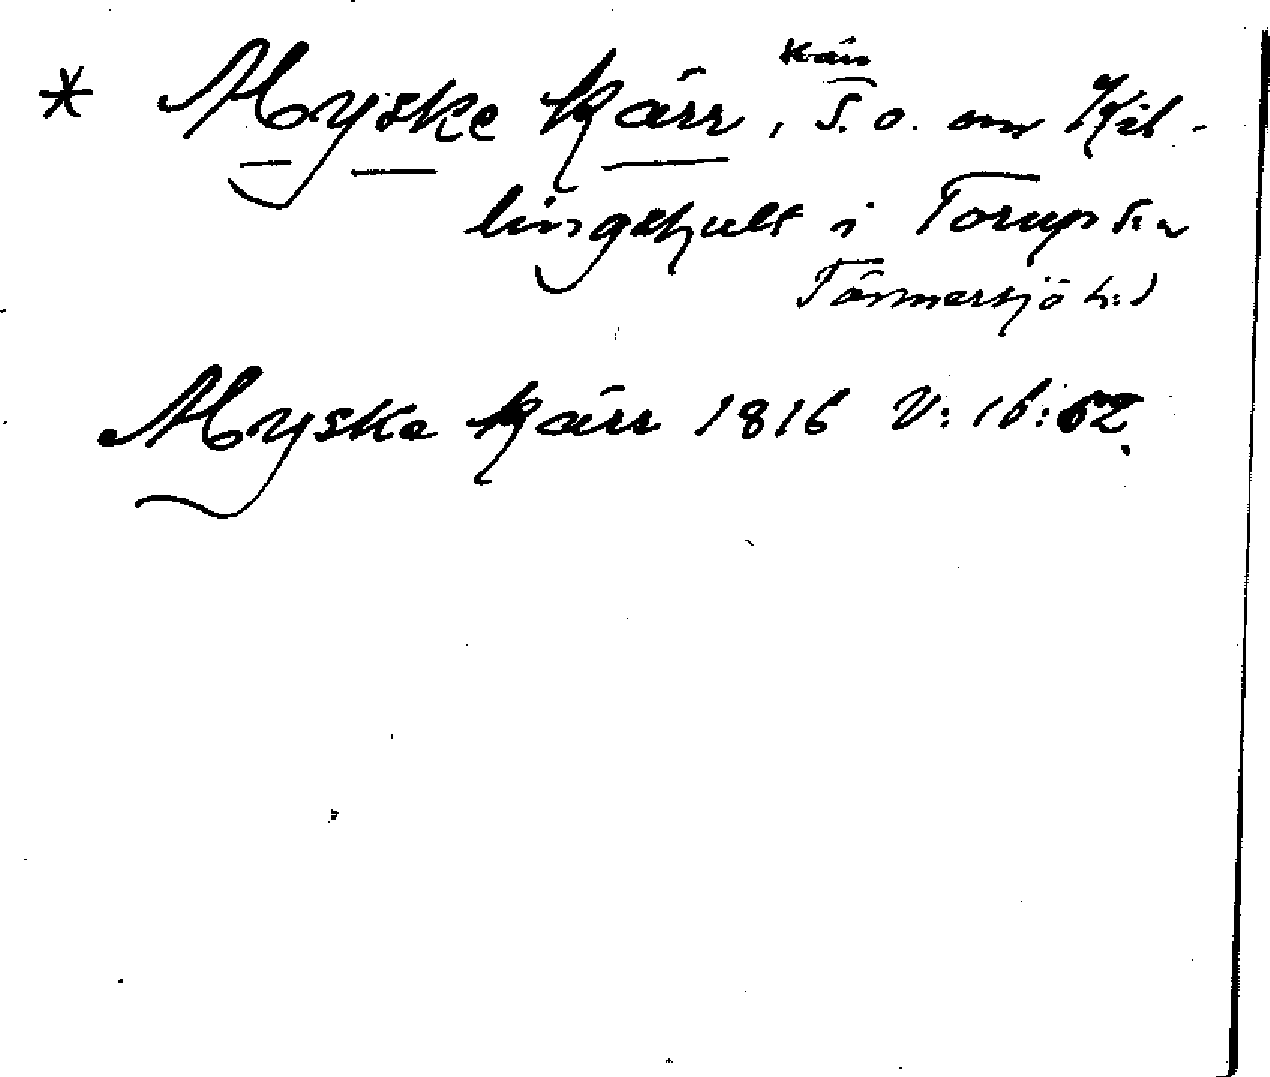 * Myske kärr, kärr S.o. om Kil-
lingshult i Torups sn
Tönnersjö hd
Myske kärr 1816 V:16:52.